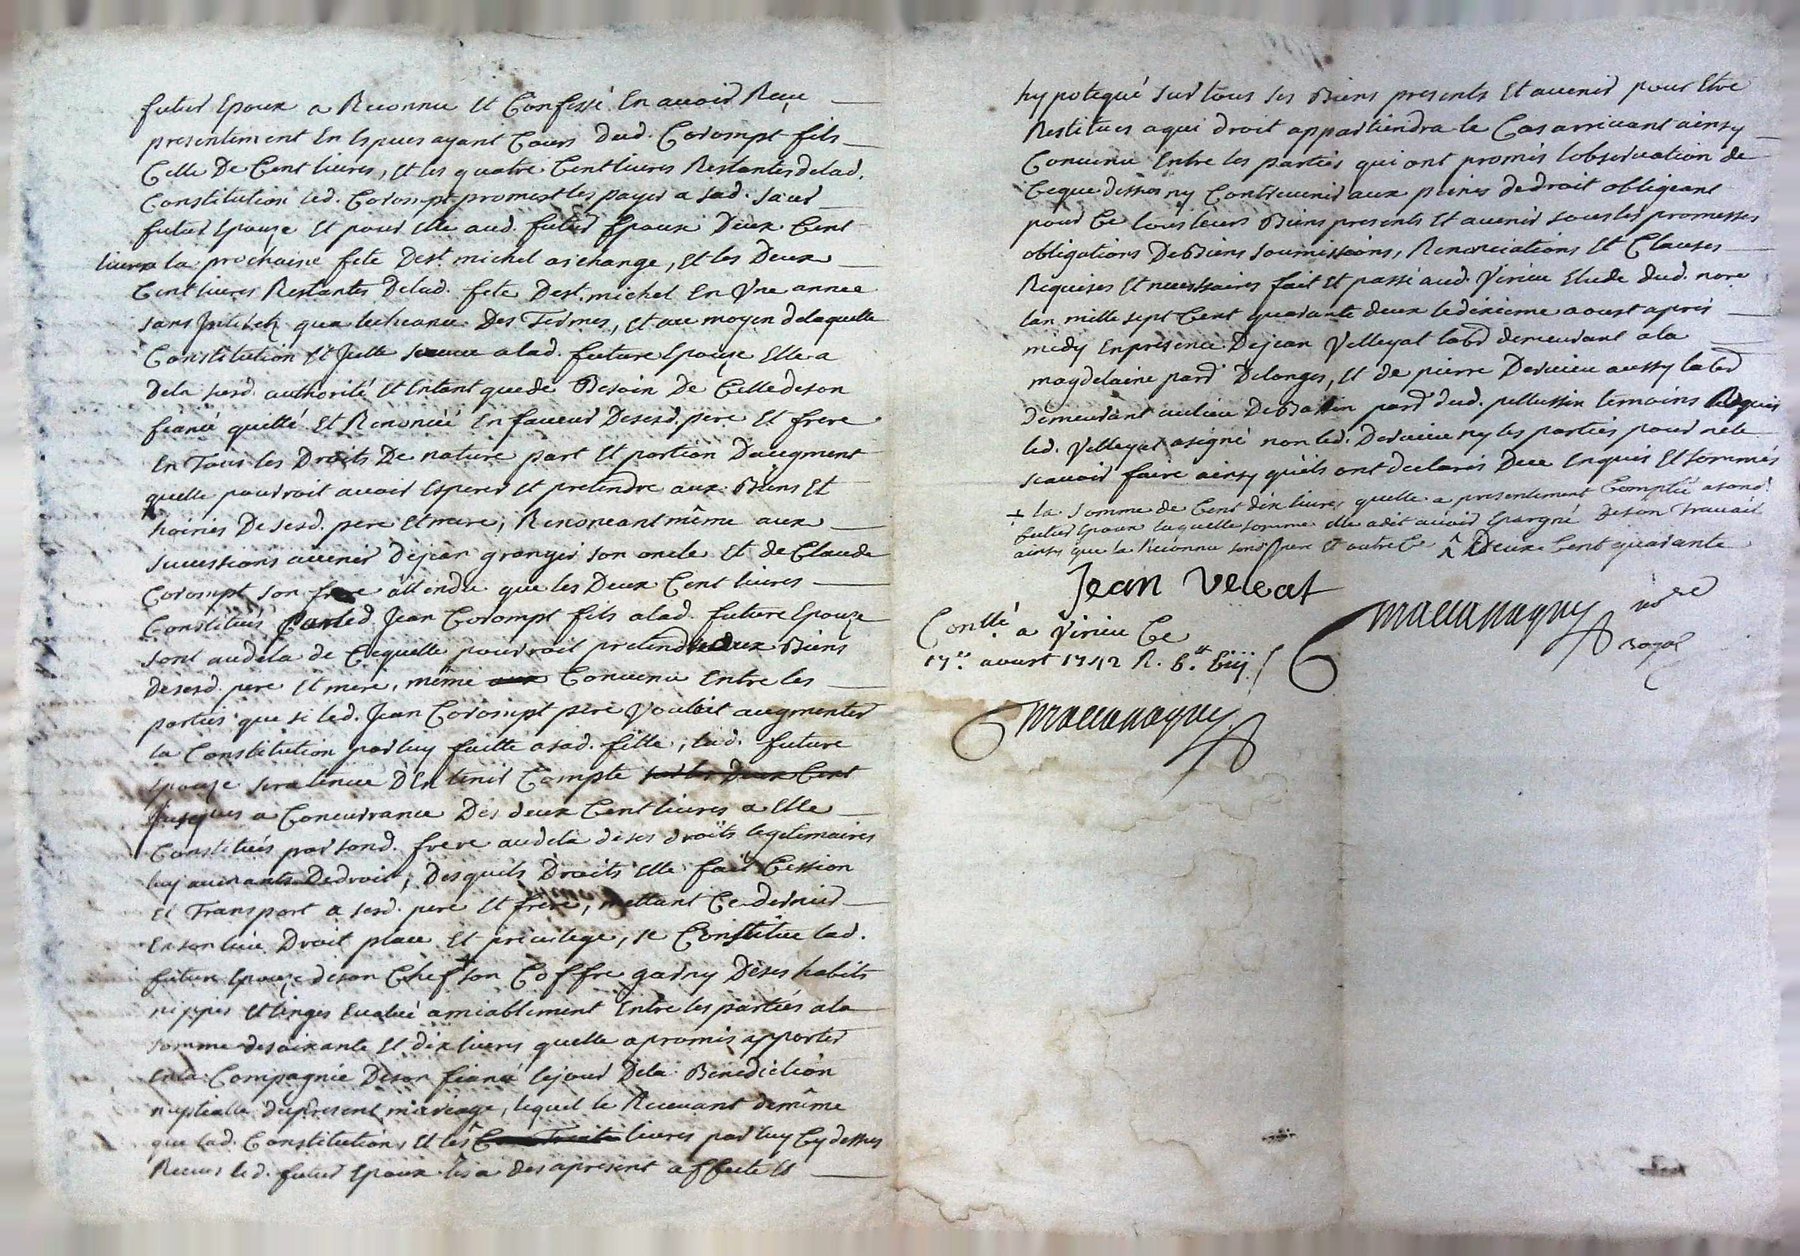 futur Epoux a Reconnu et Confessé En avoir Reçu
presentement En Especes ayant Cours dud. Corompt fils
Celle De Cent livres, Et les quatre Cent livres Restantes delad.
Constitution led. Corompt promest les payer a sad. sœur
future Epouze Et pour Elle aud. futur Epoux Deux Cent
livres la prochaine fete De st. michel archange, Et les Deux
Cent livres Restantes Delad. fete De st. michel En Une année
sans Interetz qua lecheance Des Termes, Et au moyen delaquelle
Constitution Et Julle alad. future Epouze Elle a
Dela susd. authorité Et Entant quede Besoin De Celle deson
fiancé quitté Et Renoncé En faveur Desesd. pere Et frere
En Tous les Droits De nature part Et portion Daugment
quelle pourroit avoir Esperer Et pretendre aux Biens Et
hoiries De sesd. pere Et mere, Renonceant même aux
successions avenir Dejean grangier son oncle Et de Claude
Corompt son frere attendu que les Deux Cent livres
Constitués Parled. Jean Corompt fils alad. future Epouze
sont audela de Cequelle pourroit pretendre aux Biens
Desesd. pere Et mere, même Convenu Entre les
parties que si led. Jean Corompt pere Vouloit augmenter
la Constitution par luy faitte asad. fille, lad. future
Epouze sera tenue D'En tenir Compte sur les Deux Cent
Jusques a Concurrance Des deux Cent livres a Elle
Constitués par sond. frere audela deses droits legitimaires
luy avenants Dedroit, Desquels Droits Elle fait Cession
Et Transport a sesd. pere Et frere, mettant Ce dernier
En son lieu Droit place Et privilege, se Constitue lad.
future Epouze deson Chef son Coffre garny Deses habits
nippes Et linges Evalué amiablement Entre les parties ala
somme desoixante Et dix livres quelle a promis apporter
En la Compagnie Deson fiancé lejour Dela Benediction
nuptialle dupresent mariage, lequel le Recevant demême
que lad. Constitution, Et les livres par luy Cy dessus
Reçues led. futur Epoux les a des apresent affecté Et
hypotequé sur tous ses Biens presents Et avenir pour Etre
Restitués aqui droit appartiendra le Cas arrivant ainsy
Convenu Entre les parties qui ont promis lobservation de
Ceque dessus ny Contrevenir aux peines dedroit obligeant
pour Ce tous leurs Biens presents Et avenir sous les promesses
obligations De Biens soumissions, Renonciations Et Clauses
Requises Et necessaires fait Et passé aud. Virieu Etude dud. nore
lan mille sept Cent quarante deux le dixieme aoust après
midy En presence De jean Velleyat labr demeurant a la
magdelaine parr Delanges, Et de pierre Dervieu aussy labr
demeurant aulieu De Bassin parr dud. pellussin temoins Requis
led. Velleyat asigné non led. Dervieu ny les parties pour ne le
scavoir faire ainsy quils ont declarés Deue Enquis Et sommés
+ la somme de Cent dix livres quelle a presentement Compté asond.
futur Epoux laquelle somme elle a dit avoir Epargné Deson Travail
ainsy que la Reconnu sond. pere Et outre Ce ^ Deux Cent quarante
Jean Veleat
Conllé a Virieu Ce
17e aoust 1742 R. 6tt
nore
Royal